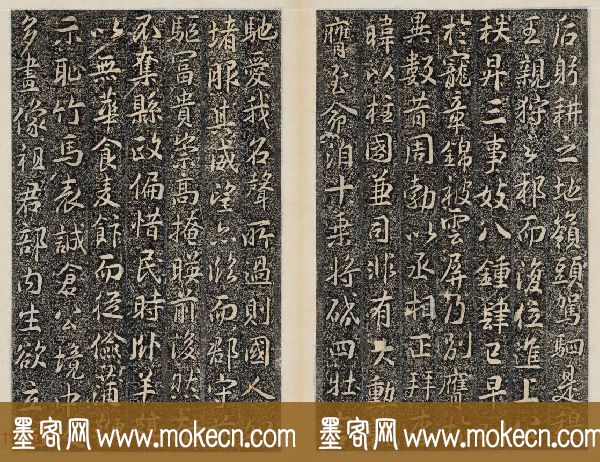 后躬耕之地嶺頭駕駟是穆
王親狩之邦而復位進上
秩昇三事妓八鍾肆已早
於寵章錦被雲屏乃別膺
異數昔周勃以丞相正拜
暐以柱國兼司非有大勳
膺至命洎十乘將砥四壯
馳愛我名聲所過則國人
堵眼其威望亦臨而郡守
駈冨貴崇高掩暎前後然
不奪縣政偏惜民時卧羊
以無華食麦飰而從儉蒲
示恥竹馬表誠倉公境中
多畫像祖君部内生欲立
墨客网 www.mokecn.com
墨客网 www.mokecn.com